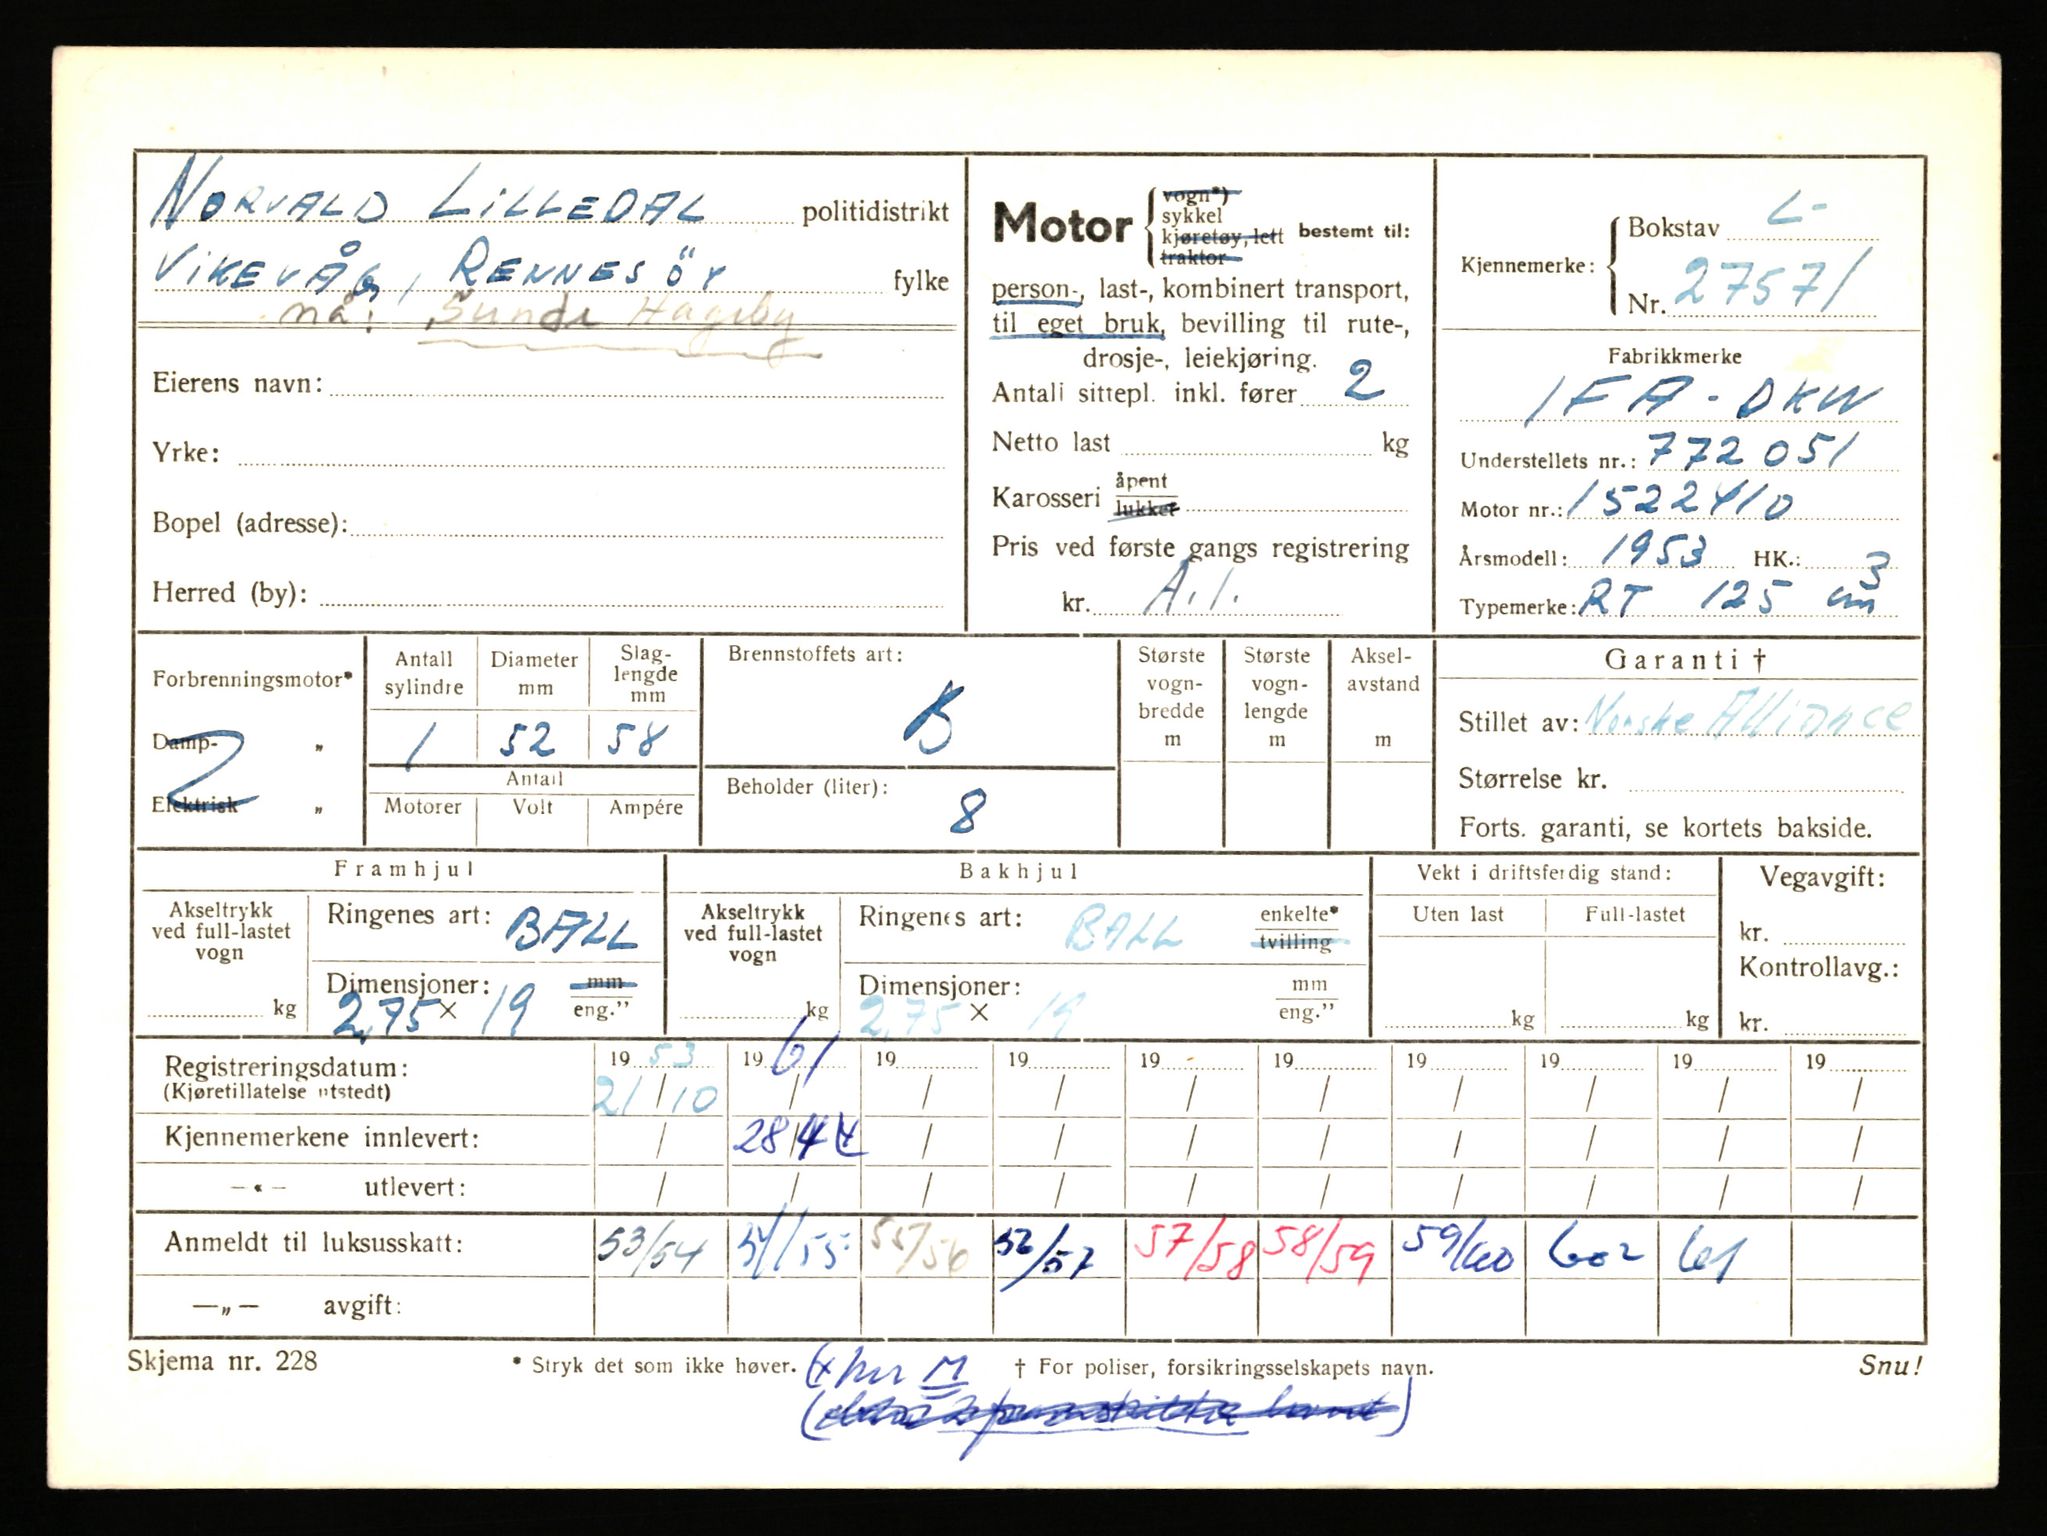 NORVALD LILLEDAL politidistrikt
VIKEVÅG, RENNESÖY fylke
nå: Sunde Hageby
Eierens navn:
Yrke:
Bopel (adresse):
Herred (by):
Motor { vogn*) sykkel kjøretøy, lett traktor bestemt til:
person-, last-, kombinert transport,
til eget bruk, bevilling til rute-,
drosje-, leiekjøring.
Antall sittepl. inkl. fører 2
Netto last kg
Karosseri åpent lukket
Pris ved første gangs registrering
kr. A.1.
Kjennemerke: { Bokstav L-
Nr. 27571
Fabrikkmerke
IFA-DKW
Understellets nr.: 772051
Motor nr.: 1522410
Årsmodell: 1953 HK.:
Typemerke: RT 125 cm3
Forbrenningsmotor*
Damp- „
Elektrisk „
2
Antall sylindre Diameter mm Slag-lengde mm
1 52 58
Antall
Motorer Volt Ampére
Brennstoffets art:
B
Beholder (liter):
8
Største vogn-bredde m
Største vogn-lengde m
Aksel-avstand m
Garanti †
Stillet av: Norske Alliance
Størrelse kr.
Forts. garanti, se kortets bakside.
Framhjul
Akseltrykk ved full-lastet vogn kg
Ringenes art: BALL
Dimensjoner: mm
2,75 × 19 eng.”
Bakhjul
Akseltrykk ved full-lastet vogn kg
Ringenes art: BALL enkelte* tvilling
Dimensjoner: mm
2,75 × 19 eng.”
Vekt i driftsferdig stand:
Uten last Full-lastet
kg kg
Vegavgift:
kr.
Kontrollavg.:
kr.
Registreringsdatum: 19 53 19 61 19 19 19 19 19 19 19 19
(Kjøretillatelse utstedt) 21/10 / / / / / / / / /
Kjennemerkene innlevert: / 28/4 / / / / / / / /
—«— utlevert: / / / / / / / / / /
Anmeldt til luksusskatt: 53/54 54/55 55/56 56/57 57/58 58/59 59/60 602 61
—„— avgift:
Skjema nr. 228 * Stryk det som ikke høver. (x har M † For poliser, forsikringsselskapets navn. Snu!